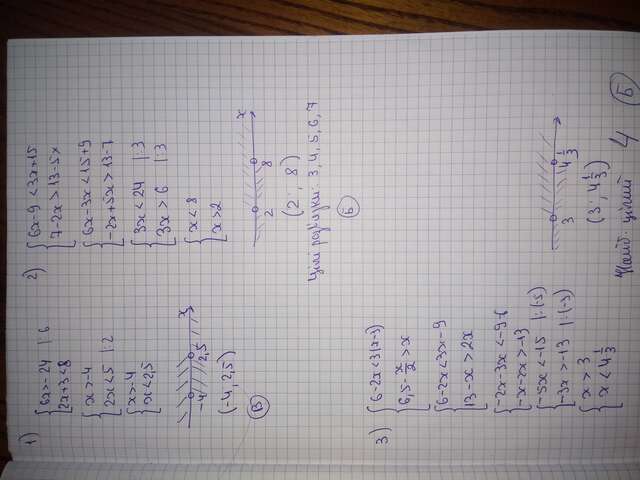 1)
{6x>-24 | 6
{2x+3<8
{x>-4
{2x<5 | 2
{x>-4
{x<2,5
-4 2,5 x
(-4; 2,5)
В
2)
{6x-9<3x+15
{7-2x>13-5x
{6x-3x<15+9
{-2x+5x>13-7
{3x<24 | 3
{3x>6 | 3
{x<8
{x>2
2 8 x
(2; 8)
Цілі розв'язки: 3, 4, 5, 6, 7
Б
3)
{6-2x<3(x-3)
{6,5-x/2>x
{6-2x<3x-9
{13-x>2x
{-2x-3x<-9-6
{-x-2x>-13
{-5x<-15 |:(-5)
{-3x>-13 |:(-3)
{x>3
{x<4 1/3
3 4 1/3
(3; 4 1/3)
Найб. цілий 4
Б